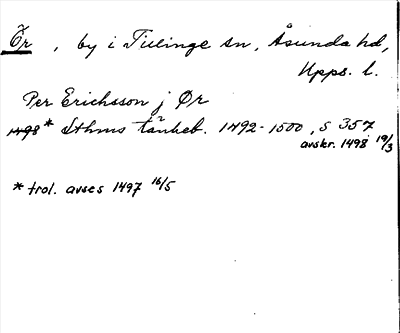 Ör, by i Tillinge sn, Åsunda hd,
Upps. l.
Per Erichsson j Ør
1498* Sthms tänkeb. 1492-1500, s 357
avskr. 1498 19/3
* trol. avses 1497 16/5